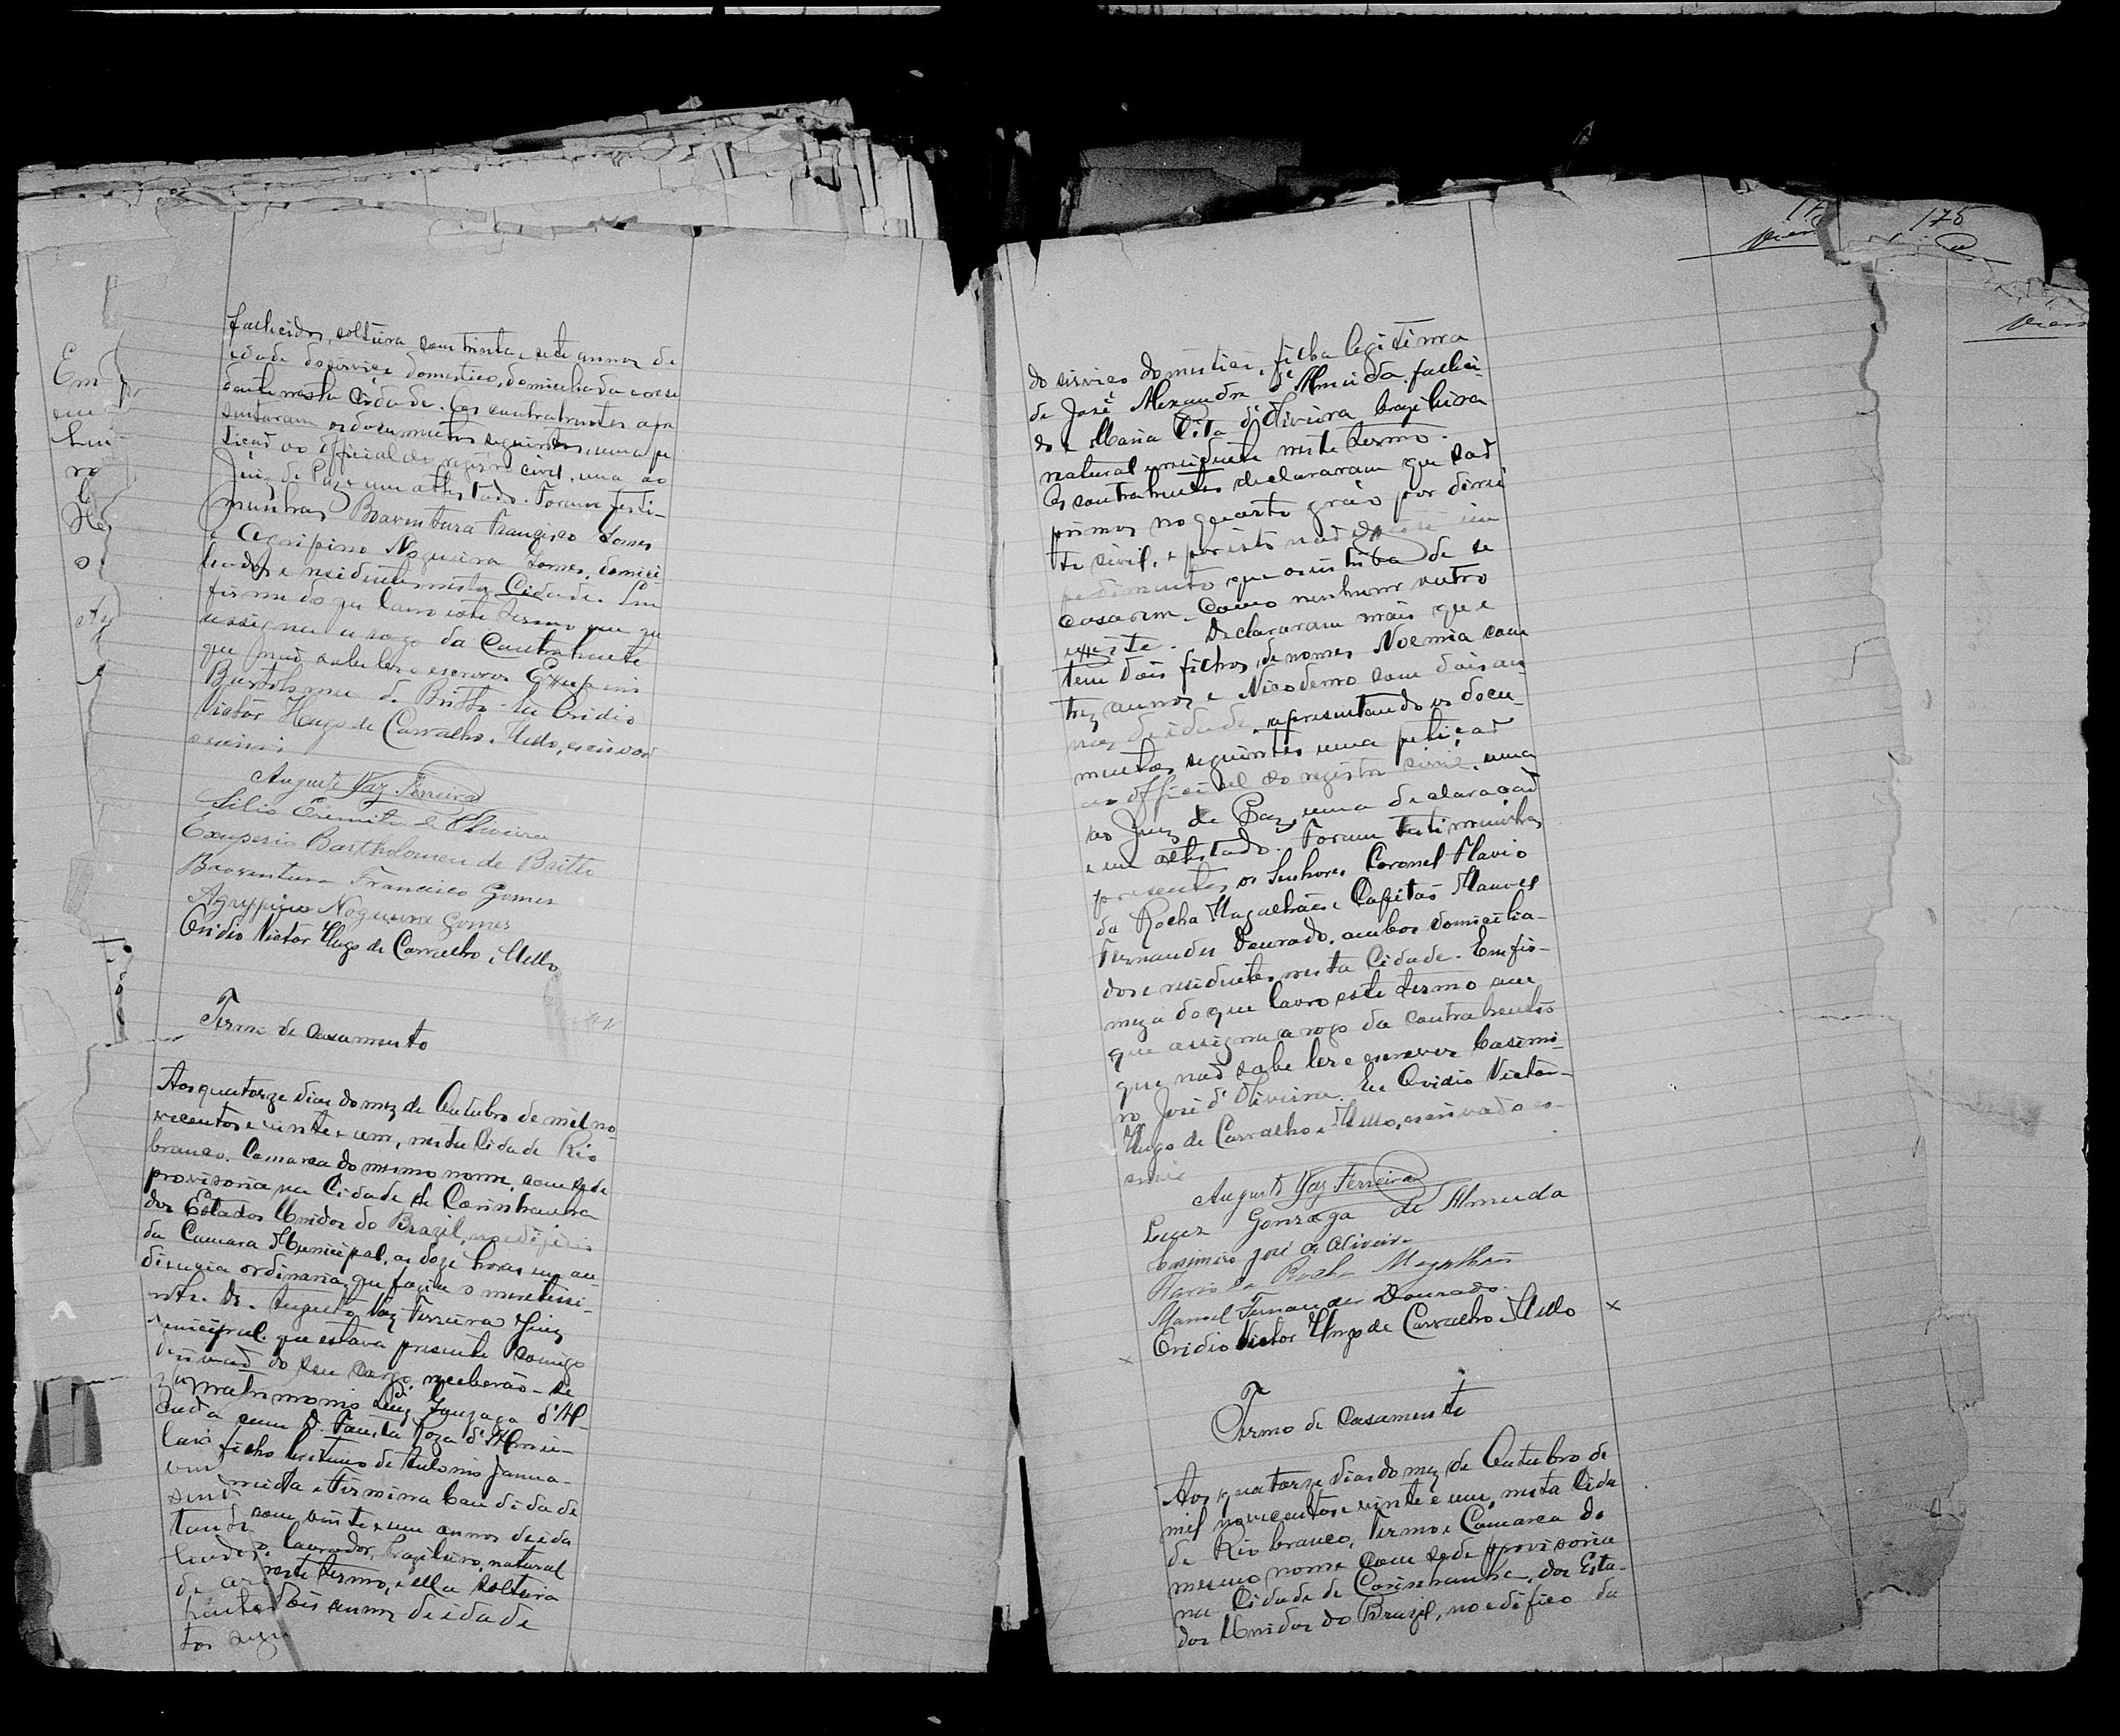 fallecidos, solteira com trinta e sete annos de
edade do serviço domestico, domiciliada e resi
dente nesta Cidade. Os contrahentes apre
sentaram os documentos seguintes, uma pe
tição ao official do registro civil, uma ao
Juiz de Paz e um attestado. Foram testi-
munhas Boaventura Francisco Gomes
e Agripino Nogueira Gomes, domici-
liados e residentes nesta Cidade. Em
firme do que lavro este termo em que
assigna a rogo da Contrahente
que não sabe ler e escrever Exuperio
Bartholomeu de Britto. Eu Ovidio
Victor Hugo de Carvalho e Mello, escrivão
escrevi
Augusto Vaz Ferreira
Lilio Eremita de Oliveira
Exuperio Bartholomeu de Britto
Boaventura Francisco Gomes
Agrippino Nogueira Gomes
Ovidio Victor Hugo de Carvalho e Mello
Termo de casamento
Aos quatorze dias do mez de Outubro de mil no-
vecentos e vinte e um, nesta Cidade Rio
branco. Comarca do mesmo nome, com sede
provisoria na Cidade de Carinhanha
dos Estados Unidos do Brazil, no edificio
da Camara Municipal, as doze horas em au-
diencia ordinaria, que fazia o meretissi-
Dr. Augusto Vaz Ferreira Juiz
que estava presente comigo
do seu cargo, receberão-se
matrimonio Luiz Gonzaga d'Al-
com D. Fausta Roza d'Almei-
filho legitimo de Antonio Janua-
e Firmina Candida de
com vinte e um annos de eda
lavrador, brazileiro, natural
neste termo, e ella solteira
dois annos de edade
17
175
do serviço domestico, filha legitima
de José Alexandre d'Almeida falleci-
do e Maria Rita d'Oliveira brazileira
natural e residente neste termo.
Os contrahentes declararam que são
primos no quarto gráo por direi
to civil, e por isto não
pedimento que os inhiba de se
casarem. Como nenhum outro
existe. Declararam mais que
tem dois filhos, de nomes Noemia com
trez annos e Nicodemo com dois an
nos de idade, apresentando os docu-
mentos seguintes uma petição
ao official do registro civil, uma
ao Juiz de Paz, uma declaração
e um attestado. Foram testimunhas
presentes, os Senhores Coronel Flavio
da Rocha Magalhães e Capitão Manoel
Fernandes Dourado, ambos domicilia-
dos e residentes nesta Cidade. Em fir-
meza do que lavro este termo em
que assigna a rogo da contrahentes
que não sabe ler e escrever Casimi-
ro José d'Oliveira. Eu Ovidio Victor
Hugo de Carvalho e Mello, escrivão es-
crevi
Augusto Vaz Ferreira
Luiz Gonzaga de Almeida
Casimiro José de Oliveira
Flavio da Rocha Magalhães
Manoel Fernandes Dourado
Ovidio Victor Hugo de Carvalho e Mello
Termo de casamento
Aos quatorze dias do mez de Outubro de
mil novecentos e vinte e um, nesta Cida
de Rio branco, Termo e Comarca do
mesmo nome com sede provisoria
na Cidade de Carinhanha, dos Esta-
dos Unidos do Brazil, no edificio da